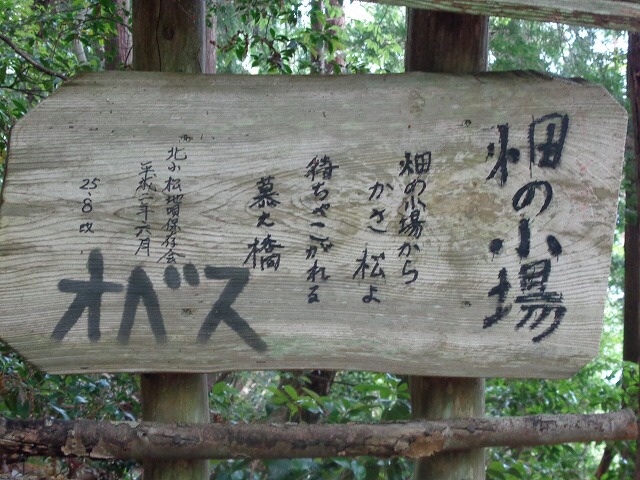 畑の小場
畑の小場から
かさ松よ
待ちやこがれる
慕之橋
北小松地唄保存会
平成二年六月
25.8改
オベス